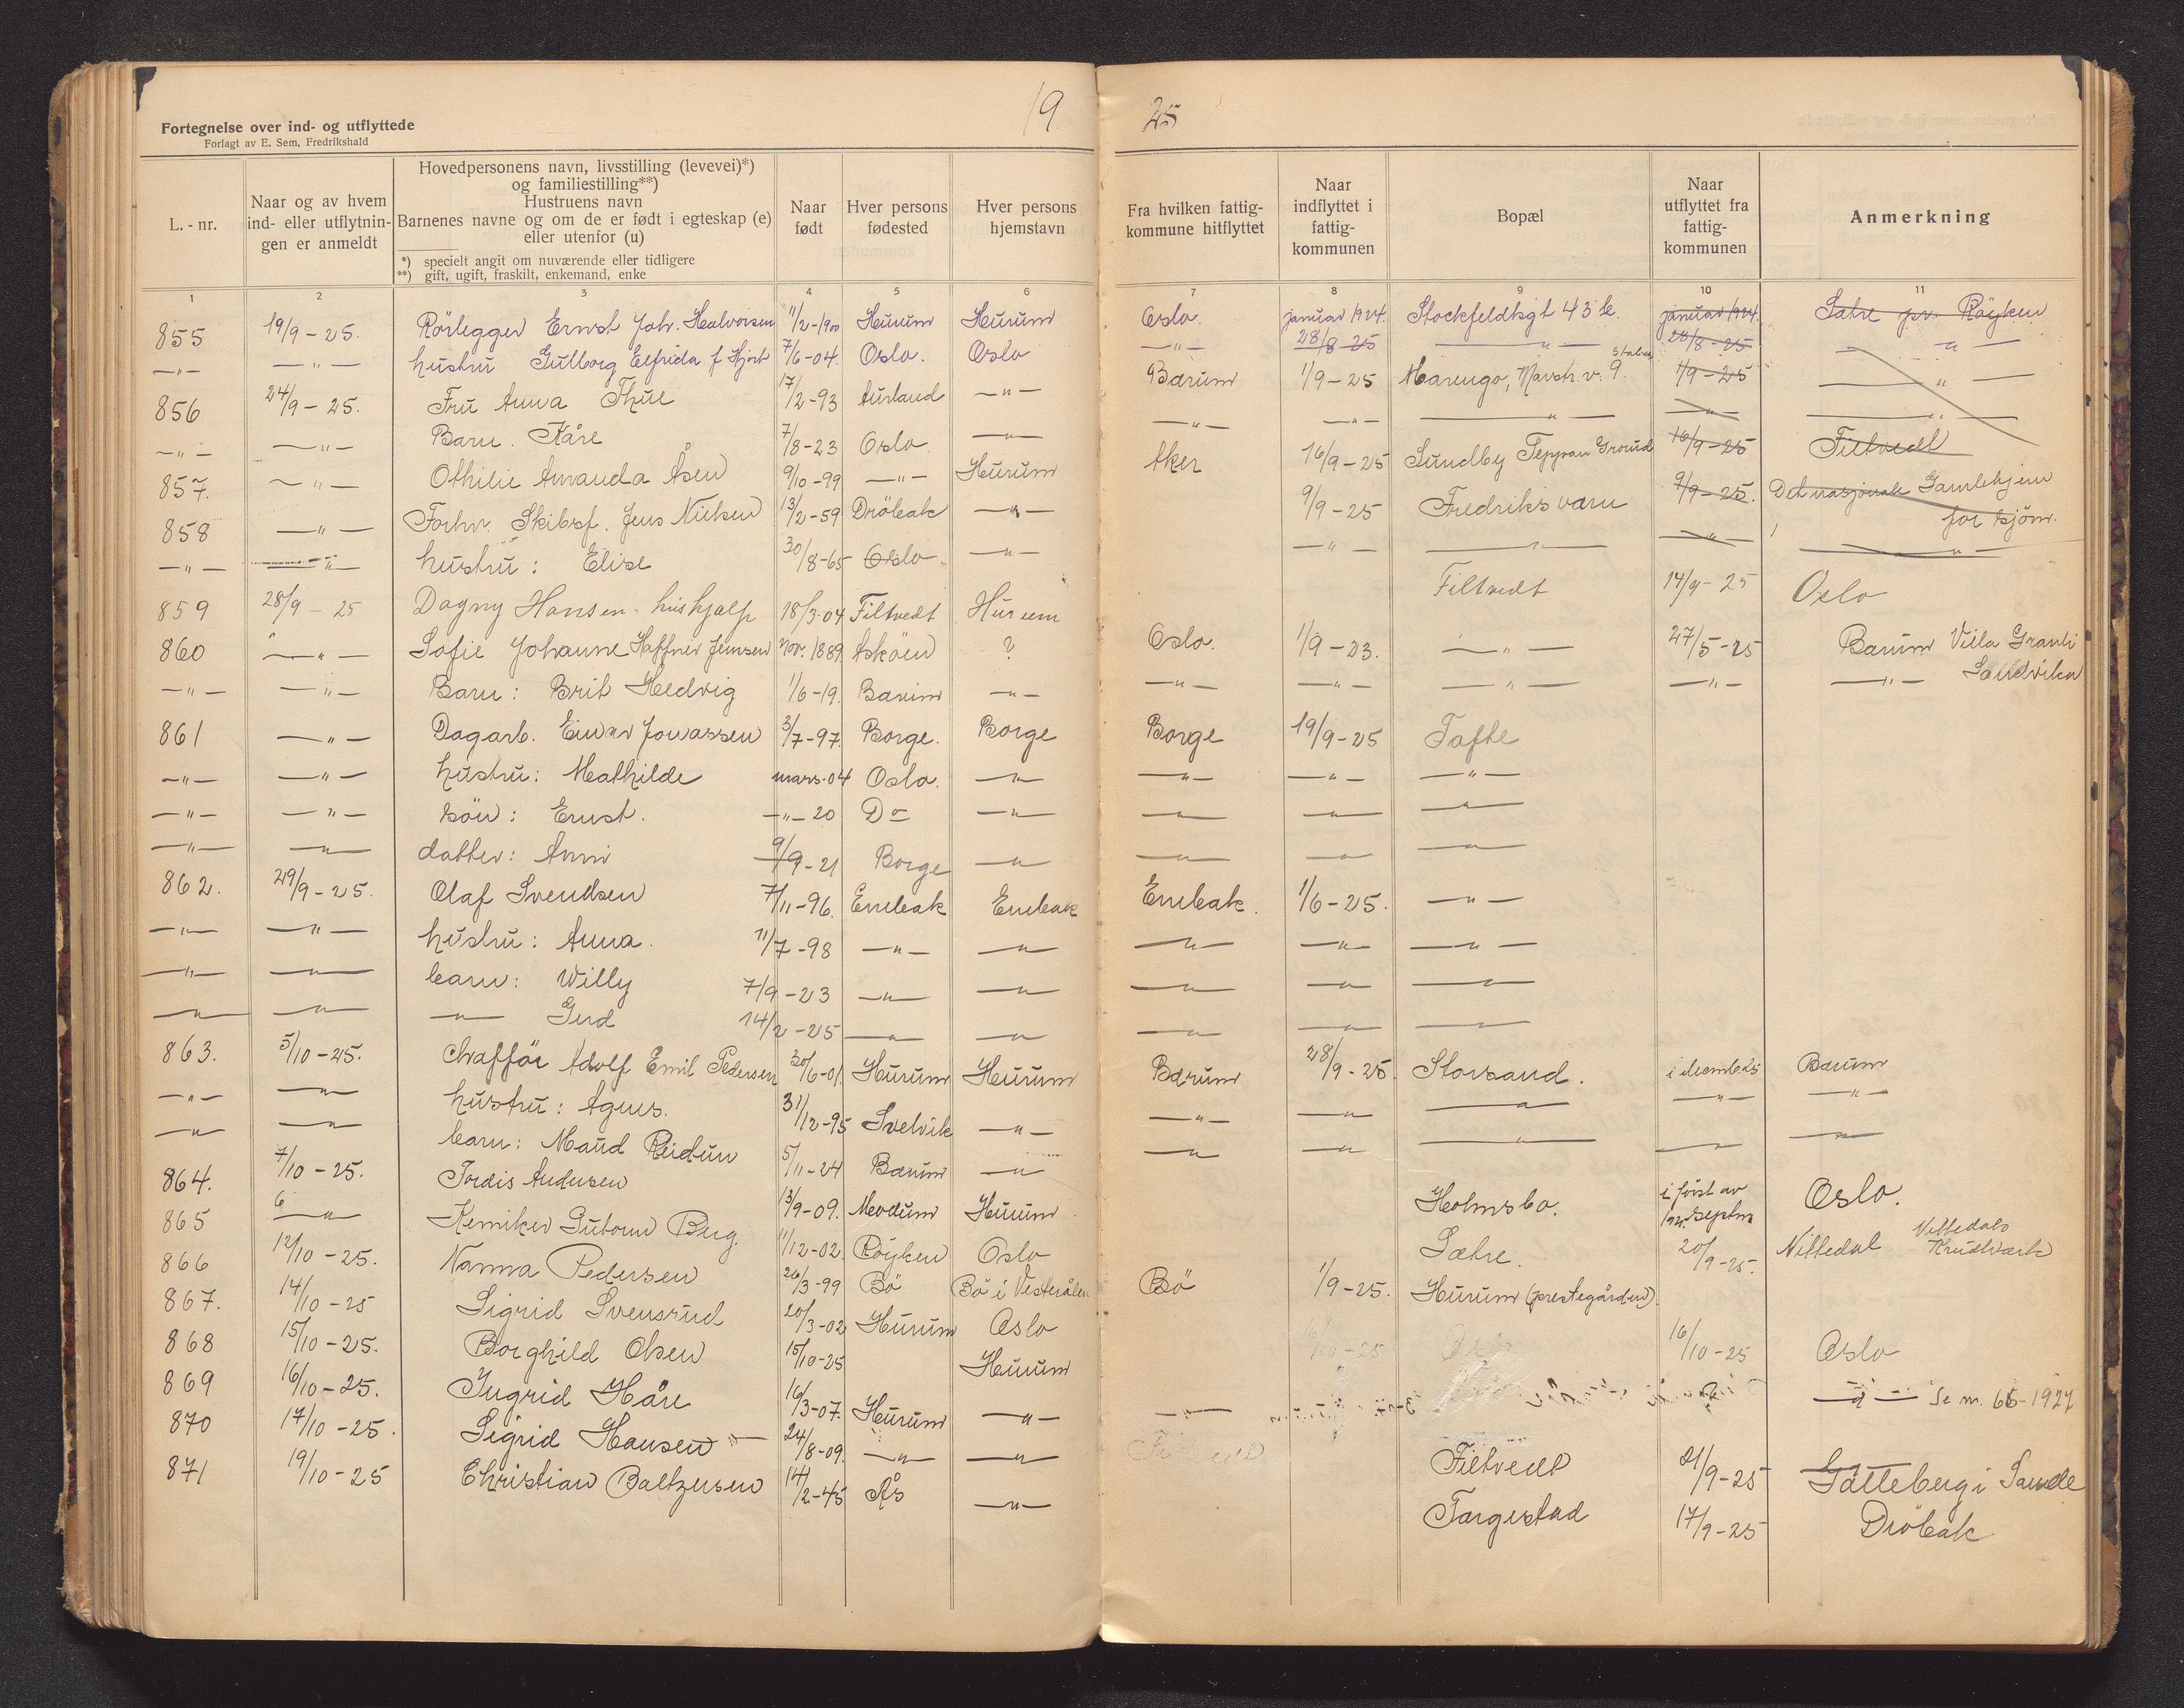 19
25
Fortegnelse over ind- og utflyttede
Forlagt av E. Sem, Fredrikshald
L. - nr.
Naar og av hvem ind- eller utflytnin- gen er anmeldt
Hovedpersonens navn, livsstilling (levevei)*)
og familiestilling**)
Hustruens navn
Barnenes navne og om de er født i egteskap (e) eller utenfor (u)
*) specielt angit om nuværende eller tidligere
**) gift, ugift, fraskilt, enkemand, enke
Naar født
Hver persons fødested
Hver persons hjemstavn
Fra hvilken fattig- kommune hitflyttet
Naar indflyttet i fattig- kommunen
Bopæl
Naar utflyttet fra fattig- kommunen
Anmerkning
1 2 3 4 5 6 7 8 9 10 11
855 19/9-25. Rörlegger Ernst Joh. Halvorsen 11/2-1900 Hurum Hurum Oslo. januar 1924. Stockfeldtsgt 43 b. januar 1924. Sætre pr. Röyken
-"- -"- hustru Gulborg Elfrida f Hjort 7/6-04. Oslo. Oslo -"- 28/8-25 -"- 28/8-25 -"-
856 24/9-25. Fru Anna Thue 17/2-93 Aurland -"- Bærum 1/9-25 Marengo, 9. 1/9-25 -"-
-"- -"- Barn. Kåre 7/8-23 Oslo -"- -"- -"- -"- -"- -"-
857. -"- Othilie Amanda Åsen 9/10-99 -"- Hurum Aker 16/9-25 Sundby Teppan Grorud 16/9-25 Filtvedt
858 -"- Forhv. Skibsf. Jens Nielsen 13/2-59 Dröbak -"- 9/9-25 Fredriksvarn 9/9-25. Det nasjonale Gamlehjem for sjöm.
-"- -"- hustru: Elise 30/8-65 Oslo -"- -"- -"- -"- -"-
859 28/9-25 Dagny Hansen - hushjælp 18/3-04 Filtvedt Hurum Filtvedt 14/9-25 Oslo
860 -"- Sofie Johanne Haffner Jensen nov. 1889 Asköen ? Oslo. 1/9-23. -"- 27/5-25 Bærum Villa Granli Sandvika
-"- -"- Barn: Brit Hedvig 1/6-19. Bærum -"- -"- -"- -"- -"- -"-
861 -"- Dagarb. Einar Jonassen 3/7-97. Borge. Borge Borge 19/9-25 Tofte
-"- -"- hustru: Mathilde mars-04 Oslo. -"- -"- -"- -"-
-"- -"- sön: Ernst. -"-20 Do -"- -"- -"- -"-
-"- -"- datter: Anni 9/9-21 Borge -"- -"- -"- -"-
862. 29/9-25. Olaf Svendsen 7/11-96. Enebak Enebak Enebak. 1/6-25. -"-
-"- -"- hustru: Anna. 11/7-98 -"- -"- -"- -"- -"-
-"- -"- barn: Willy 7/9-23 -"- -"- -"- -"- -"-
-"- -"- -"- Gerd 14/2-25 -"- -"- -"- -"- -"-
863. 5/10-25. Chafför Adolf Emil Pedersen 30/6-01. Hurum Hurum Bærum 28/9-25. Storsand. i decemb. 25 Bærum
-"- -"- hustru: Agnes. 31/12-95 Svelvik -"- -"- -"- -"- -"- -"-
-"- -"- barn: Maud Reidun 5/11-24 Bærum -"- -"- -"- -"- -"- -"-
864. 7/10-25. Tordis Andersen 13/9-09. Modum Hurum Holmsbo. i först av septbr Oslo.
865 -"- Kemiker Gutorm Berg. 11/12-02. Röyken Oslo Sætre. 20/9-25. Nittedal Nittedals Krudtværk
866 12/10-25. Nanna Pedersen 26/3-99 Bö Bö i Vesterålen Bö 1/9-25. Hurum (prestegården).
867. 14/10-25 Sigrid Svensrud 20/3-02 Hurum Oslo 16/10-25 Oslo
868 15/10-25. Borghild Olsen 15/10-25 Hurum -"- Se nr. 66-1927
869 16/10-25. Ingrid Håre 16/3-07. Hurum -"- -"-
870 17/10-25. Sigrid Hansen -"- 24/8-09. -"- -"- Filtvedt 21/9-25 Galleberg i Sande
871 19/10-25 Christian Baltzersen 14/2-45 Ås -"- Tørgestad 17/9-25 Dröbak